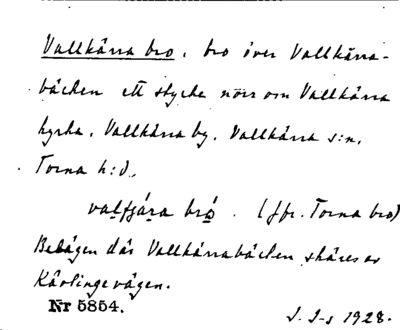 Vallkärra bro, bro över Vallkärra-
bäcken ett stycke norr om Vallkärra
kyrka, Vallkärra by, Vallkärra s:n,
Torna h:d.
valfjára bró. (Jfr. Torna bro)
Belägen där Vallkärrabäcken skäres av
Kävlingevägen.
Nr 5854.
J. J-s 1928.